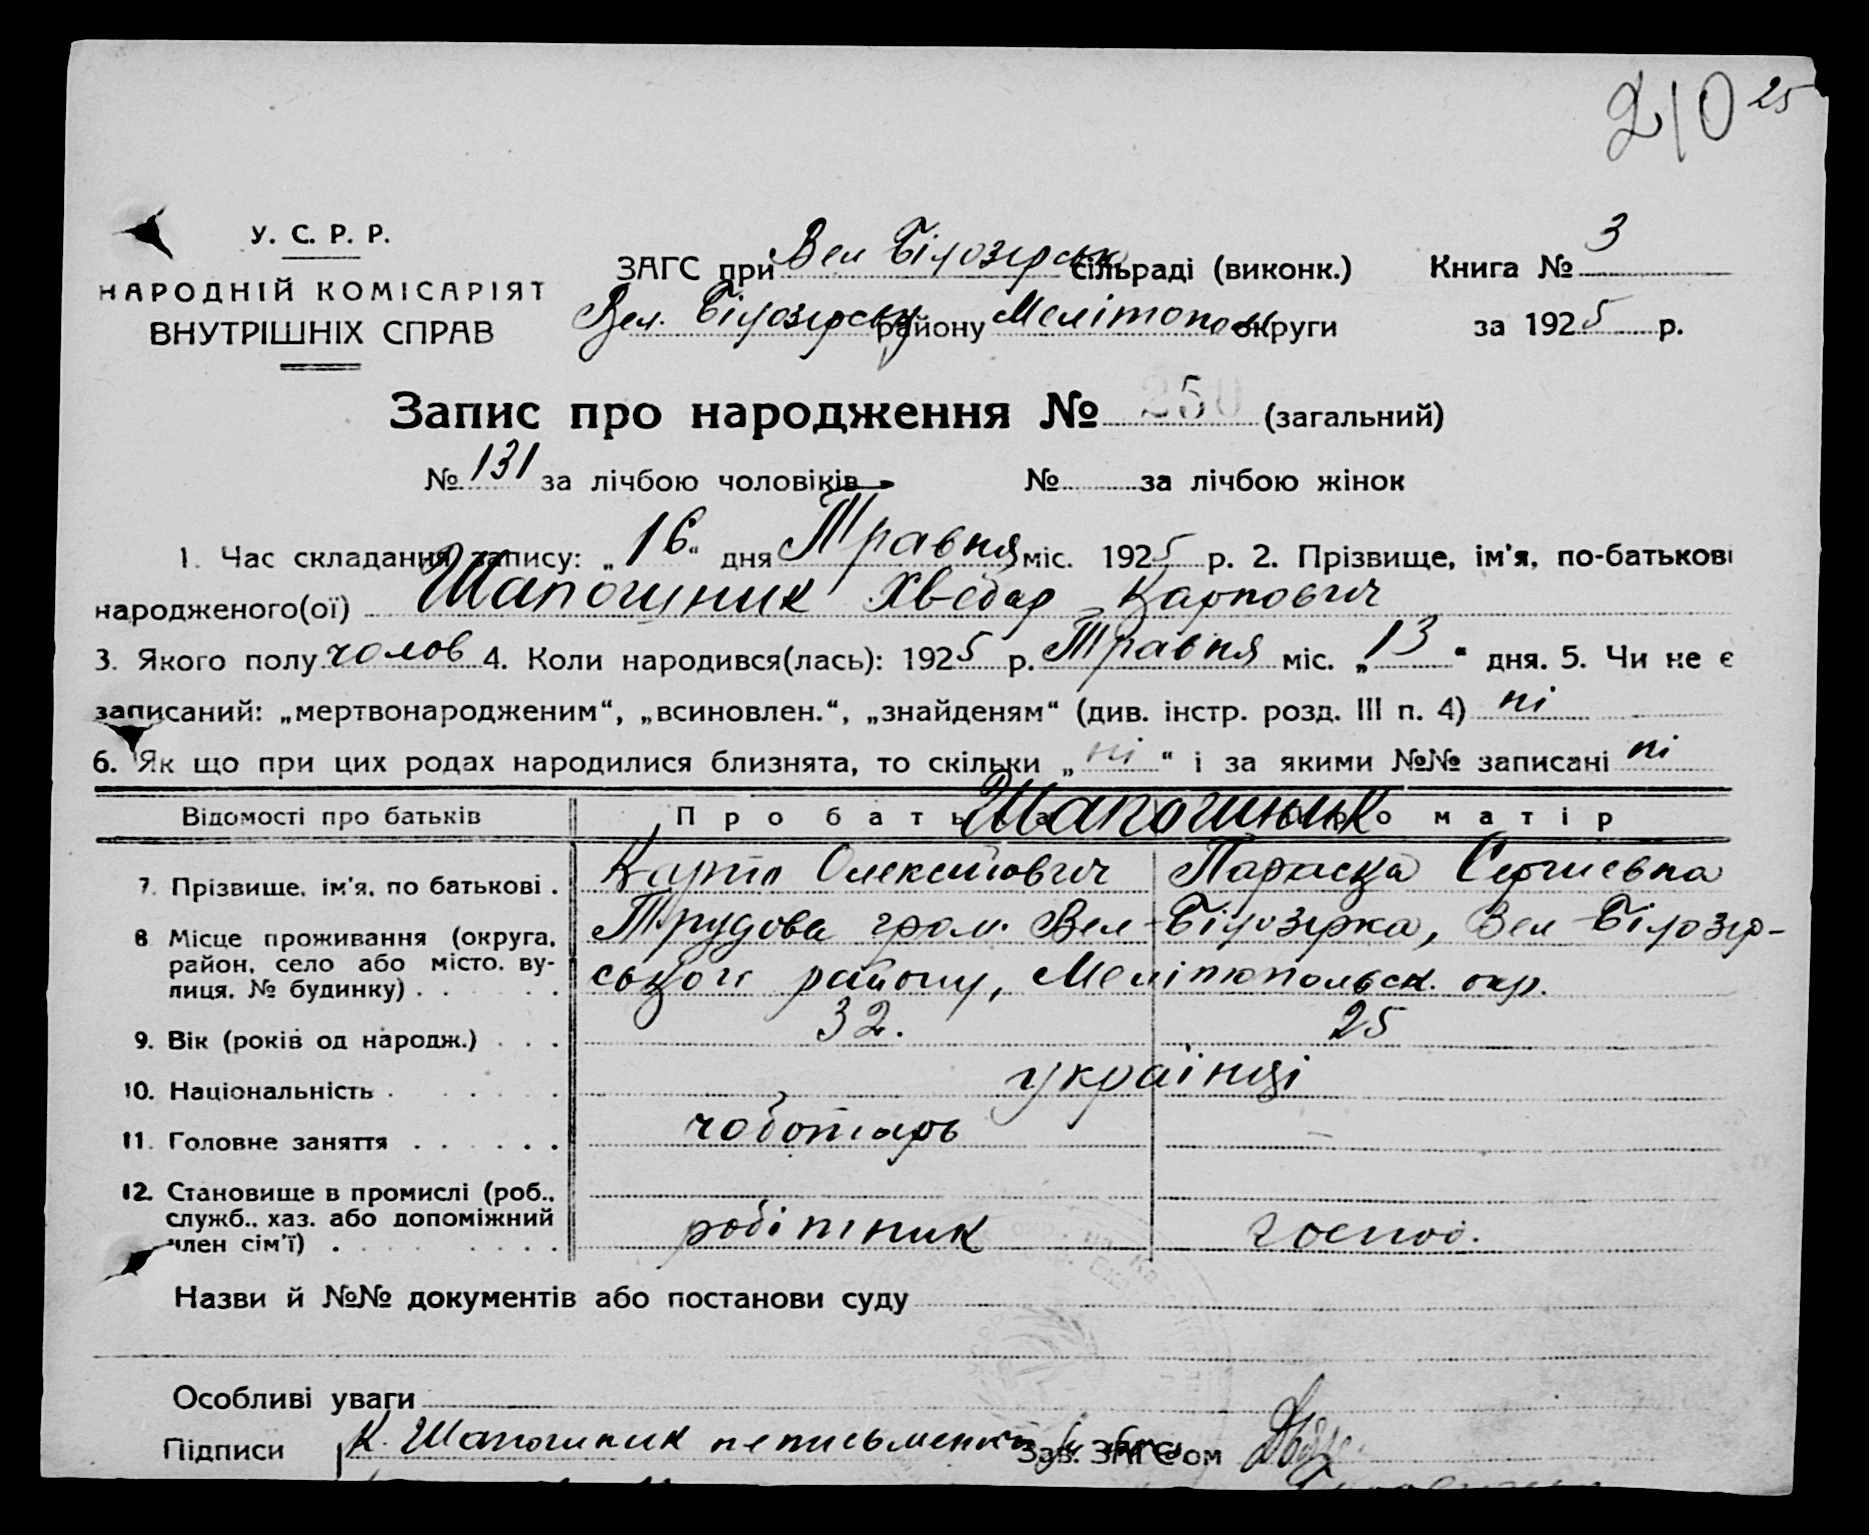 210 25
У. С. Р. Р.
НАРОДНІЙ КОМІСАРІЯТ
ВНУТРІШНІХ СПРАВ
ЗАГС при Вел Білозірськ сільраді (виконк.) Книга № 3
Вел. Білозірськ району Мелітопол округи за 1925 р.
Запис про народження № 250 (загальний)
№ 131 за лічбою чоловіків № за лічбою жінок
1. Час складання запису: „16“ дня Травня міс. 1925 р. 2. Прізвище, ім'я, по-батькові
народженого(ої) Шапошник Хведор Карпович
3. Якого полу чолов 4. Коли народився(лась): 1925 р. Травня міс. „13“ дня. 5. Чи не є
записаний: „мертвонародженим“, „всиновлен.“, „знайденям“ (див. інстр. розд. III п. 4) ні
6. Як що при цих родах народилися близнята, то скільки „ні“ і за якими №№ записані ні
Відомості про батьків Про батька Про матір
Шапошник
7. Прізвище, ім'я, по батькові . Карпо Олексійович Параска Сергиевна
8 Місце проживання (округа, район, село або місто, вулиця, № будинку) . Трудова гром. Вел-Білозірка, Вел-Білозір-
ського району, Мелітопольськ. окр.
9. Вік (років од народж.) . . . 32. 25
10. Національність . українці
11. Головне заняття . чоботарь —
12. Становище в промислі (роб., служб., хаз. або допоміжний член сім'ї) . робітник господ.
Назви й №№ документів або постанови суду
Особливі уваги
Підписи К. Шапошник неписьменн Зав. ЗАГС'ом